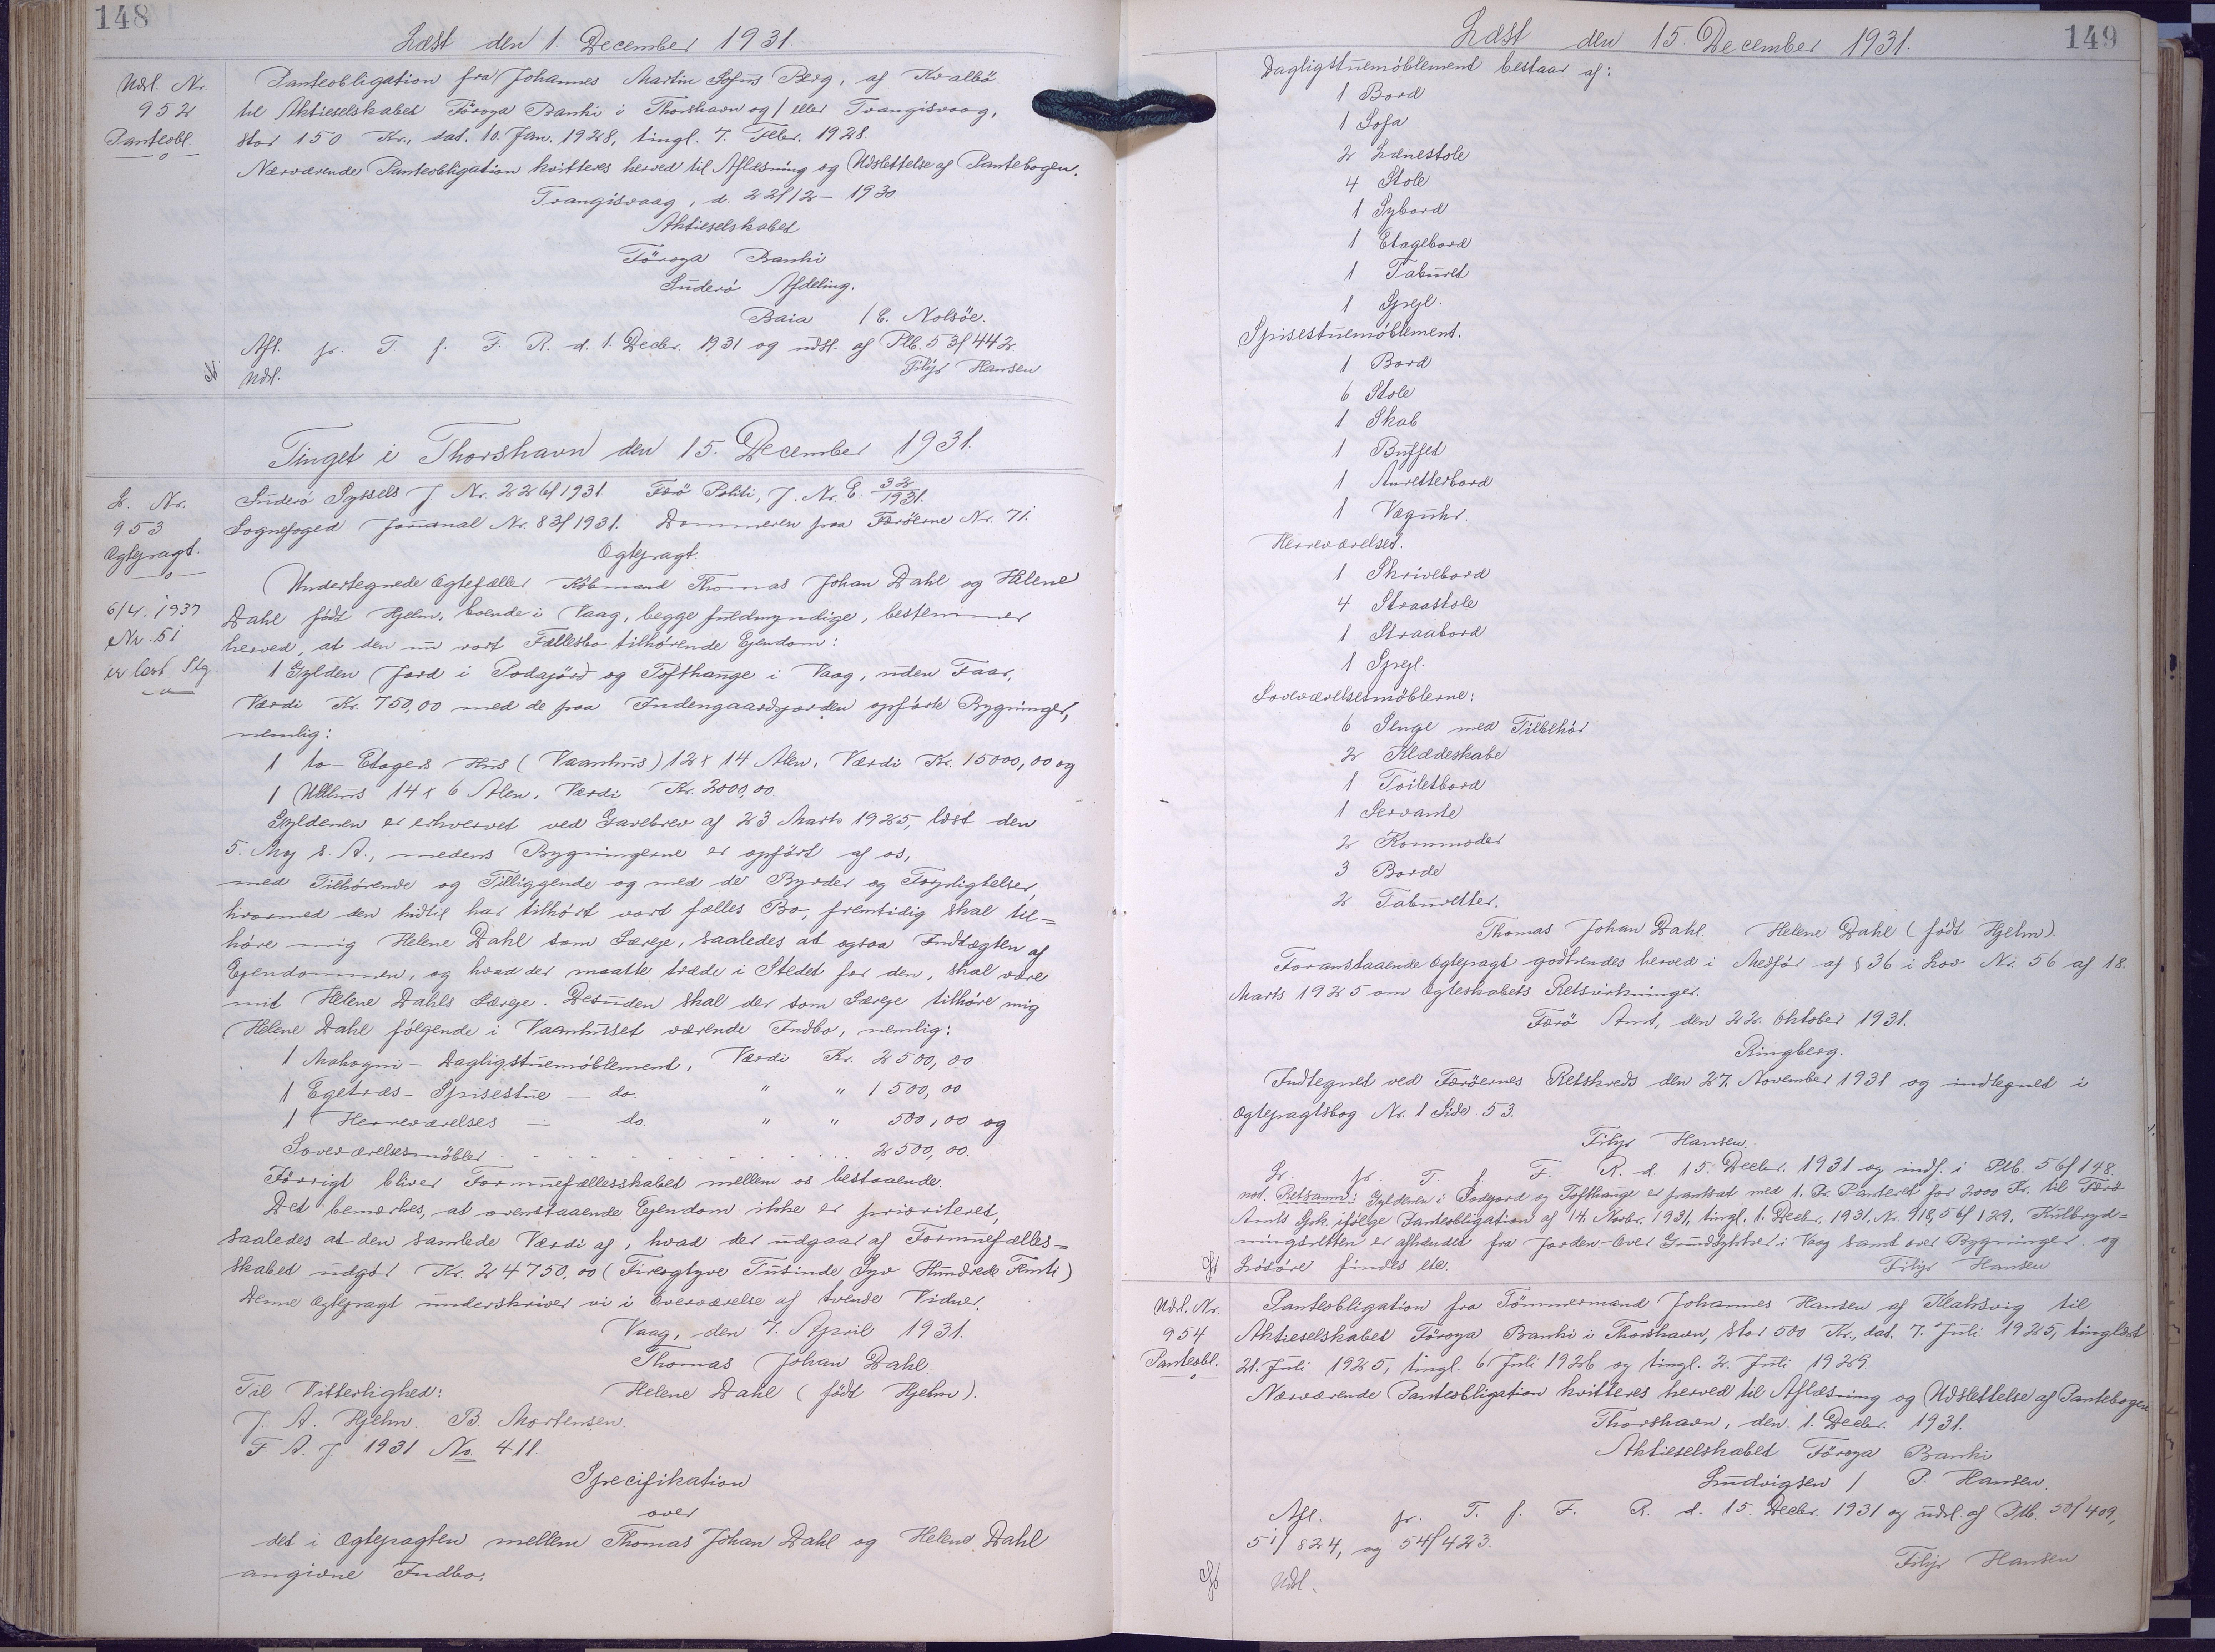 148
Læst den 1. December 1931.
Udsl. Nr. 952 Panteobl.
Panteobligation fra Johannes Martin Sofus Berg, af Kvalbø
til Aktieselskabet Föroya Banki i Thorshavn og/eller Trangisvaag,
stor 150 Kr., dat. 10. Jan. 1928, tingl. 7. Febr. 1928.
Nærværende Panteobligation kvitteres herved til Aflæsning og Udslettelse af Pantebogen.
Trangisvaag, d. 22/12 - 1930.
Aktieselskabet
Föroya Banki
Suderø Afdeling.
Baia / E. Nolsöe.
Afl. fr. T. f. F. R. d. 1. Decbr. 1931 og udsl. af Ptb. 53/442.
Udsl. Filip Hansen
Tinget i Thorshavn den 15. December 1931.
L. Nr. 953 Ægtepagt.
Suderø Syssels J Nr. 226/1931 Færø Politi, J. Nr. E. 32/1931.
Sognefoged Journal Nr. 83/1931. Dommeren paa Færöerne Nr. 71.
Ægtepagt.
6/4. 1937
Nr. 51
er læst Ptg.
Undertegnede Ægtefæller Købmand Thomas Johan Dahl og Helene
Dahl født Hjelm, boende i Vaag, begge fuldmyndige, bestemmer
herved, at den nu vort Fællesbo tilhørende Ejendom:
1 Gylden Jord i Podajörd og Tofthauge i Vaag, uden Faar,
Værdi Kr. 750,00 med de paa Indengaardsjorden opførte Bygninger,
nemlig:
1 to- Etagers Hus (Vaanhus) 12 x 14 Alen. Værdi Kr. 15000,00 og
1 Udhus 14 x 6 Alen. Værdi Kr. 2000,00.
Gyldenen er erhvervet ved Gavebrev af 23. Marts 1925, læst den
5. Maj s. A., medens Bygningerne er opført af os,
med Tilhørende og Tilliggende og med de Byrder og Forpligtelser,
hvormed den hidtil har tilhørt vort fælles Bo, fremtidig skal til=
høre mig Helene Dahl som Særeje, saaledes at ogsaa Indtægten af
Ejendommen, og hvad der maatte træde i Stedet for den, skal være
mit Helene Dahls Særeje. Desuden skal der som Særeje tilhøre mig
Helene Dahl følgende i Vaanhuset værende Indbo, nemlig:
1 Mahogni - Dagligstuemöblement, Værdi Kr. 2500,00
1 Egetræs - Spisestue - do. " " 1500,00
1 Herreværelses - do. " " 500,00 og
Soveværelsesmöbler . . . . . . . . . . 2500,00.
Förrigt bliver Formuefællesskabet mellem os bestaaende.
Det bemærkes, at ovenstaaende Ejendom ikke er prioriteret,
saaledes at den samlede Værdi af, hvad der udgaar af Formuefælles=
skabet udgör Kr. 24750,00 (Fireogtyve Tusinde Syv Hundrede Femti)
Denne Ægtepagt underskriver vi i Overværelse af tvende Vidner.
Vaag, den 7. April 1931.
Thomas Johan Dahl.
Til Vitterlighed: Helene Dahl (født Hjelm).
J. A. Hjelm. B. Mortensen.
F. A. J. 1931 No. 411.
Specifikation
over
det i Ægtepagten mellem Thomas Johan Dahl og Helene Dahl
angivne Indbo:
Læst den 15. December 1931.
149
Dagligstuemöblement bestaar af:
1 Bord
1 Sofa
2 Lænestole
4 Stole
1 Sybord
1 Etagebord
1 Taburet
1 Spejl.
Spisestuemöblement.
1 Bord
6 Stole
1 Skab
1 Buffet
1 Anretterbord
1 Væguhr.
Herreværelset.
1 Skrivebord
4 Straastole
1 Straabord
1 Spejl.
Soveværelsesmöblerne:
6 Senge med Tilbehör
2 Klædeskabe
1 Toiletbord
1 Servante
2 Kommoder
3 Borde
2 Taburetter.
Thomas Johan Dahl. Helene Dahl (født Hjelm).
Foranstaaende Ægtepagt godkendes herved i Medför af § 36 i Lov Nr. 56 af 18.
Marts 1925 om Ægteskabets Retsvirkninger.
Færø Amt, den 22. Oktober 1931.
Ringberg.
Indtegnet ved Færöernes Retskreds den 27. November 1931 og indtegnet i
Ægtepagtsbog Nr. 1 Side 53.
Filip Hansen.
Lr. fr. T. f. F. R. d. 15. Decbr. 1931 og indf. i Ptb. 56/148.
not. Retsanm.: Gyldenen i Podajord og Tofthauge er pantsat med 1. Pr. Panteret for 2000 Kr. til Færø
Amts Spk. ifølge Panteobligation af 14. Novbr. 1931, tingl. 1. Decbr. 1931. Nr. 918, 56/129. Kulbryd=
ningsretten er afhændet fra Jorden - Over Grundstykker i Vaag samt over Bygninger og
Løsøre findes etc. Filip Hansen
Udsl. Nr. 954 Panteobl.
Panteobligation fra Tömmermand Johannes Hansen af Klaksvig til
Aktieselskabet Föroya Banki i Thorshavn, stor 500 Kr., dat. 7. Juli 1925, tinglæst
21. Juli 1925, tingl. 6 Juli 1926 og tingl. 2. Juli 1929.
Nærværende Panteobligation kvitteres herved til Aflæsning og Udslettelse af Pantebogen
Thorshavn, den 1. Decbr. 1931.
Aktieselskabet Föroya Banki
Ludvigsen / P. Hansen.
Afl. fr. T. f. F. R. d. 15. Decbr. 1931 og udsl. af Ptb. 50/409,
51/824, og 54/423.
Filip Hansen
Udsl.